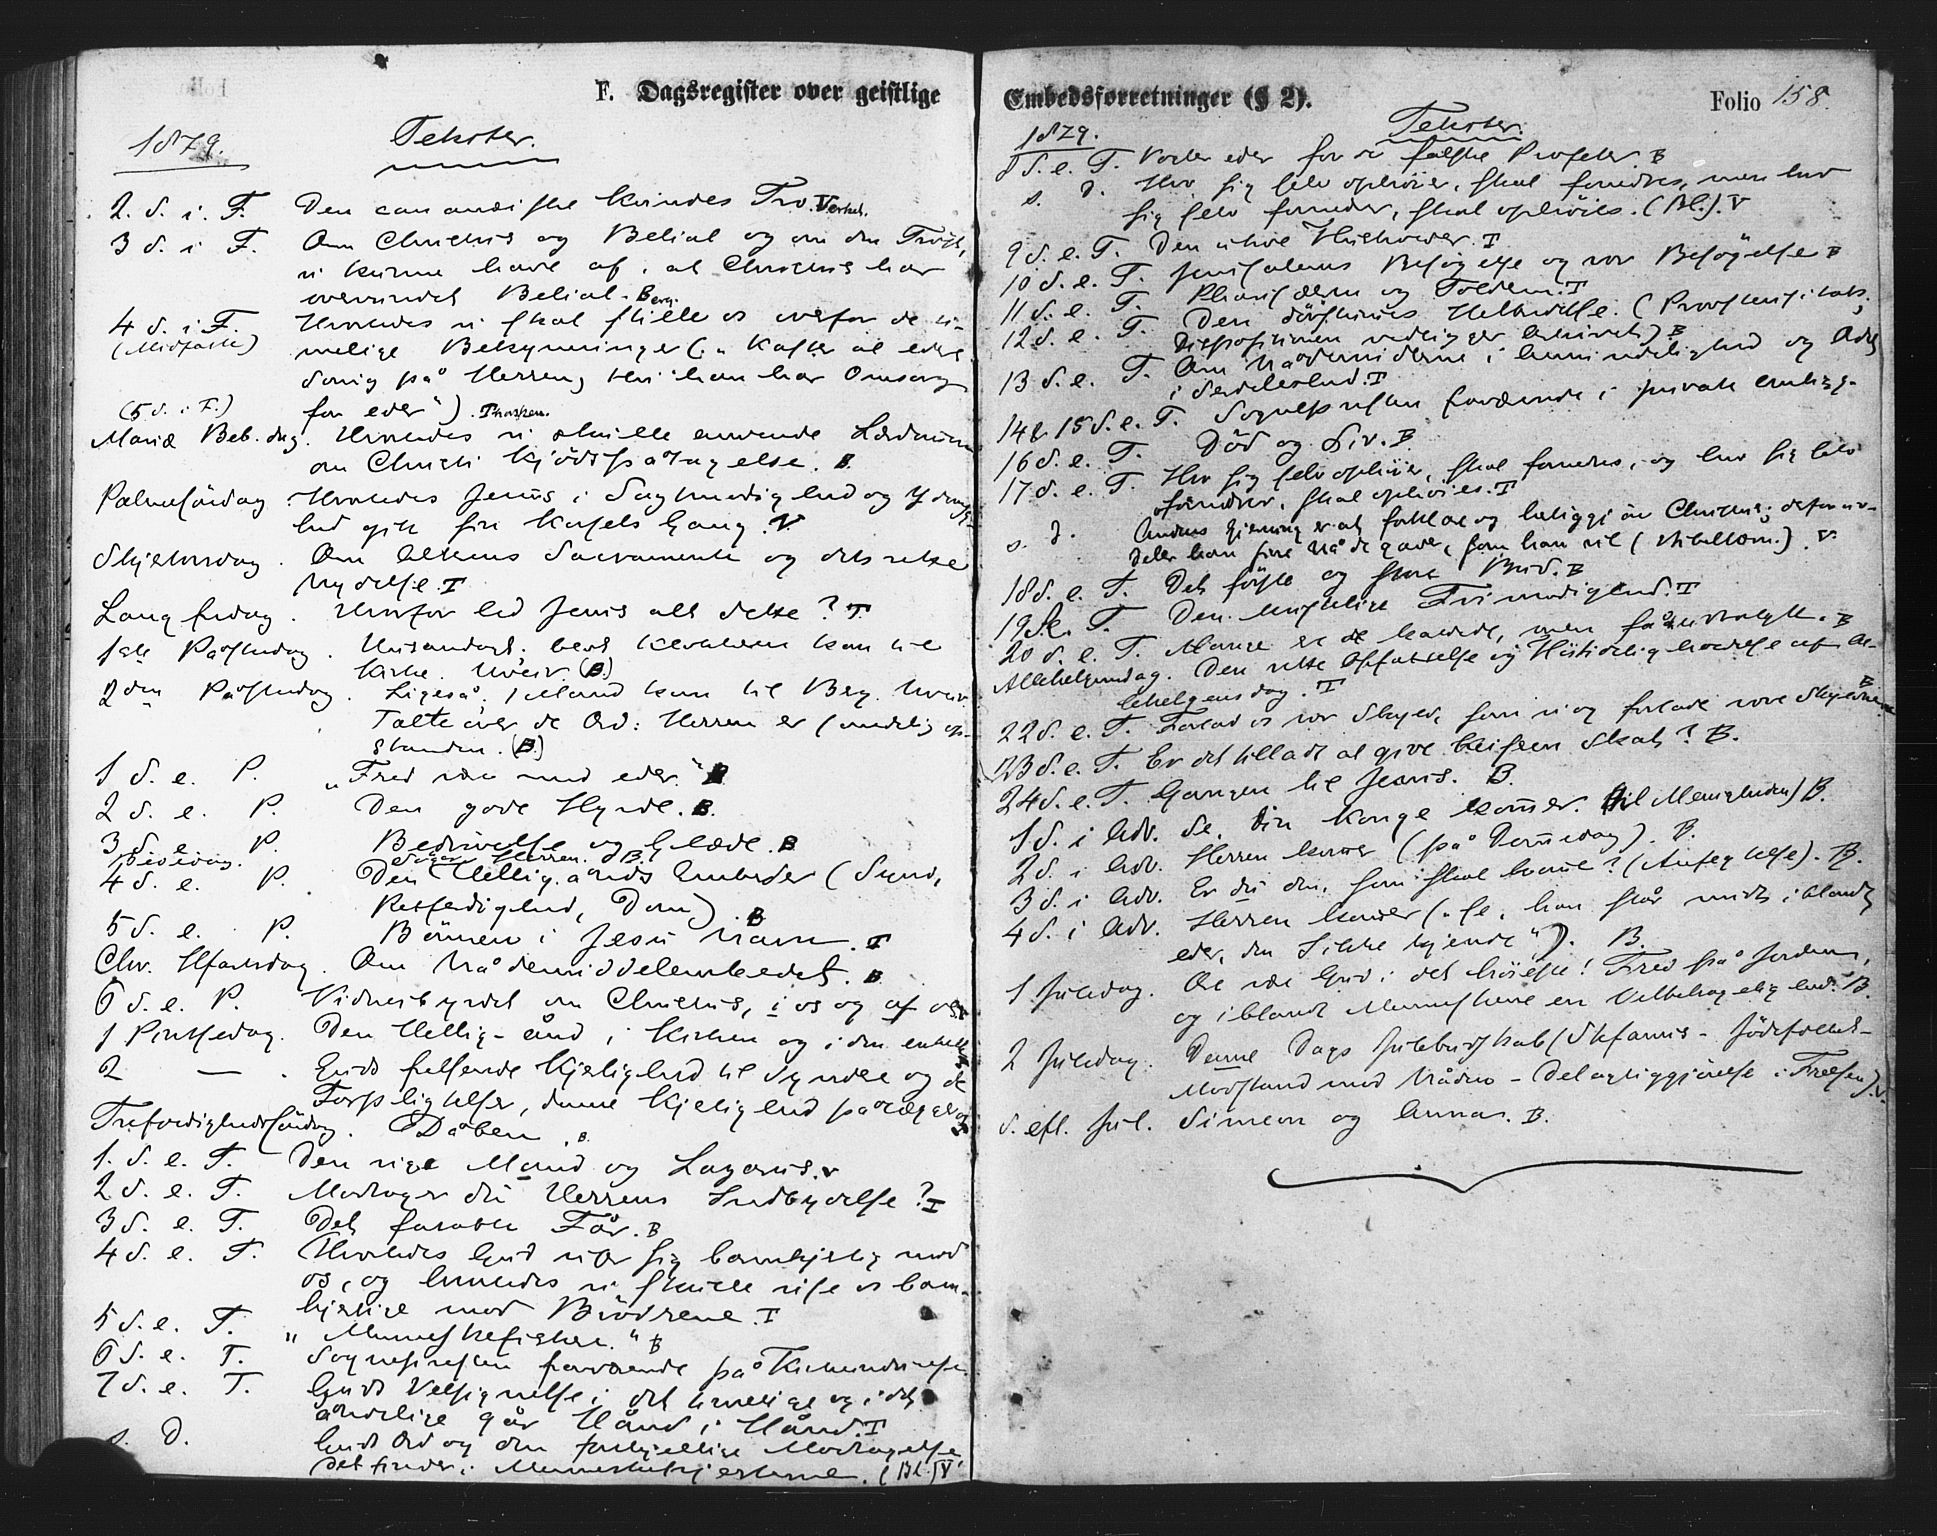 F. Dagsregister over geistlige
1879. Tekster.
2. S. i. F. Den cananæiske Kvindes Tro. V
3 S. i F. Om Christus og Belial og om den Trøst,
vi kunne have af, at Christus har
overvundet Belial. Berg.
4 S. i F. Hvorledes vi skal stille os overfor de ti-
(Midfaste) melige Bekymringer („Kaster al eders
Sorg på Herren, thi han har Omsorg
(5 S. i F.) for eder").
Mariæ Beb. dag. Hvorledes vi skulle anvende Lærdommen
om Christi Kjödspåtagelse. B.
Palmesöndag. Hvorledes Jesus i Sagtmodighed og Ydmyg-
hed gik sin Korsets Gang. V
Skjetorsdag. Om Alterens Sacramente og dets rette
Nydelse. T
Langfredag. Hvorfor led Jesus alt dette? T
1ste Påskedag. Husandagt; bert Klokkeren kom til
Kirke. Uveir. (B.)
2den Påskedag. Ligeså, 1 Mand kom til Berg. Uveir.
Talte over de Ord: Herren er sandelig op-
standen. (B.)
1 S. e. P. „Fred være med eder." B
2 S. e. P. Den gode Hyrde. B.
3 S. e. P. Bedrövelse og Glæde. B
Bededag. Söger Herren. B.
4 S. e. P. Den Hellig-ånds Embeder (Synd,
Retfærdighed, Dom). B
5 S. e. P. Bönnen i Jesu Navn. T
Chr. Hfartsdag. Om Nådemiddelembedet. B
6 S. e. P. Vidnesbyrdet om Christus, i os og af os.
1 Pintsedag. Den Hellig-ånd i Kirken og i den enkelte
2 — . Guds frelsende Kjerlighed til Syndere og de
Forpligtelser, denne Kjerlighed pålægger os
Trefoldighedssöndag. Dåben. B.
1. S. e. T. Den rige Mand og Lazarus. V
2 S. e. T. Modtager du Herrens Indbydelse? T
3 S. e. T. Det fortabte Får. B
4 S. e. T. Hvorledes Gud viser sig barmhjertig mod
os, og hvorledes vi skulle vise os barm-
hjertige mod Brödrene. T
5 S. e. T. „Menneskefiskere." B
6 S. e. T. Sognepresten fraværende på
7 S. e. T. Guds Velsignelse i det timelige og i det
åndelige går Hånd i Hånd. T
s. D. Guds Ord og den forskjellige Modtagelse,
det finder i Menneskehjerterne. (Bl.) V
Embedsforretninger (§ 2). Folio 158.
1879. Tekster.
8 S. e. T. Vogter eder for de falske Profeter. B
s. D. Hvo sig selv ophöier, skal fornedres, men hvo
sig selv fornedrer, skal ophöies. (Bl.). V
9 S. e. T. Den utroe Husholder. T
10 S. e. T. Jerusalems Besögelse og vor Besögelse B
11 S. e. T. Pharisæeren og Tolderen. T
12 S. e. T. Den dövstummes Helbredelse. (Provstevisitats,
Dispositionen vedligger Arkivet) B
13 S. e. T. Om Nådemidlerne i Almindelighed og Dåb
i Serdeleshed. T
14 & 15 S. e. T. Sognepresten fraværende i private Anligg.
16 S. e. T. Död og Liv. B
17 S. e. T. Hvo sig selv ophöier, skal fornedres, og hvo sig selv
fornedrer, skal ophöies. T
s. D. Åndens Gjerning er at forklare og herliggjöre Christus; derfor ud-
deler han sine Nådegaver, som han vil V
18 S. e. T. Det förste og store Bud. B
19 S. e. T. Den christelige Frimodighed. T
20 S. e. T. Mange ere kaldede, men få udvalgte. B
Allehelgensdag. Den rette Opfattelse og Höitideligholdelse af Al-
lehelgensdag. T
22 S. e. T. Forlad os vor Skyld, som vi og forlade vore Skyldnere. B
23 S. e. T. Er det tilladt at give Keiseren Skat? B.
24 S. e. T. Gangen til Jesus. B.
1 S. i Adv. Se, din Konge kom̄er. (til Menigheden) B.
2 S. i Adv. Herren kom̄er (på Dom̄edag). B.
3 S. i Adv. Er du den, som skal kom̄e? (Anfegtelse). B.
4 S. i Adv. Herren kom̄er („se, han står midt iblandt
eder, den I ikke kjende"). B.
1 Juledag. Ære være Gud i det höieste! Fred på Jorden,
og iblandt Menneskene en Velbehagelighed. B.
2 Juledag. Denne Dags Julebudskab (Stefanus - Jödefolkets
Modstand mod Nåden - Delagtiggjörelse i Frelsen). V.
S. eft. Jul. Simeon og Anna. B.